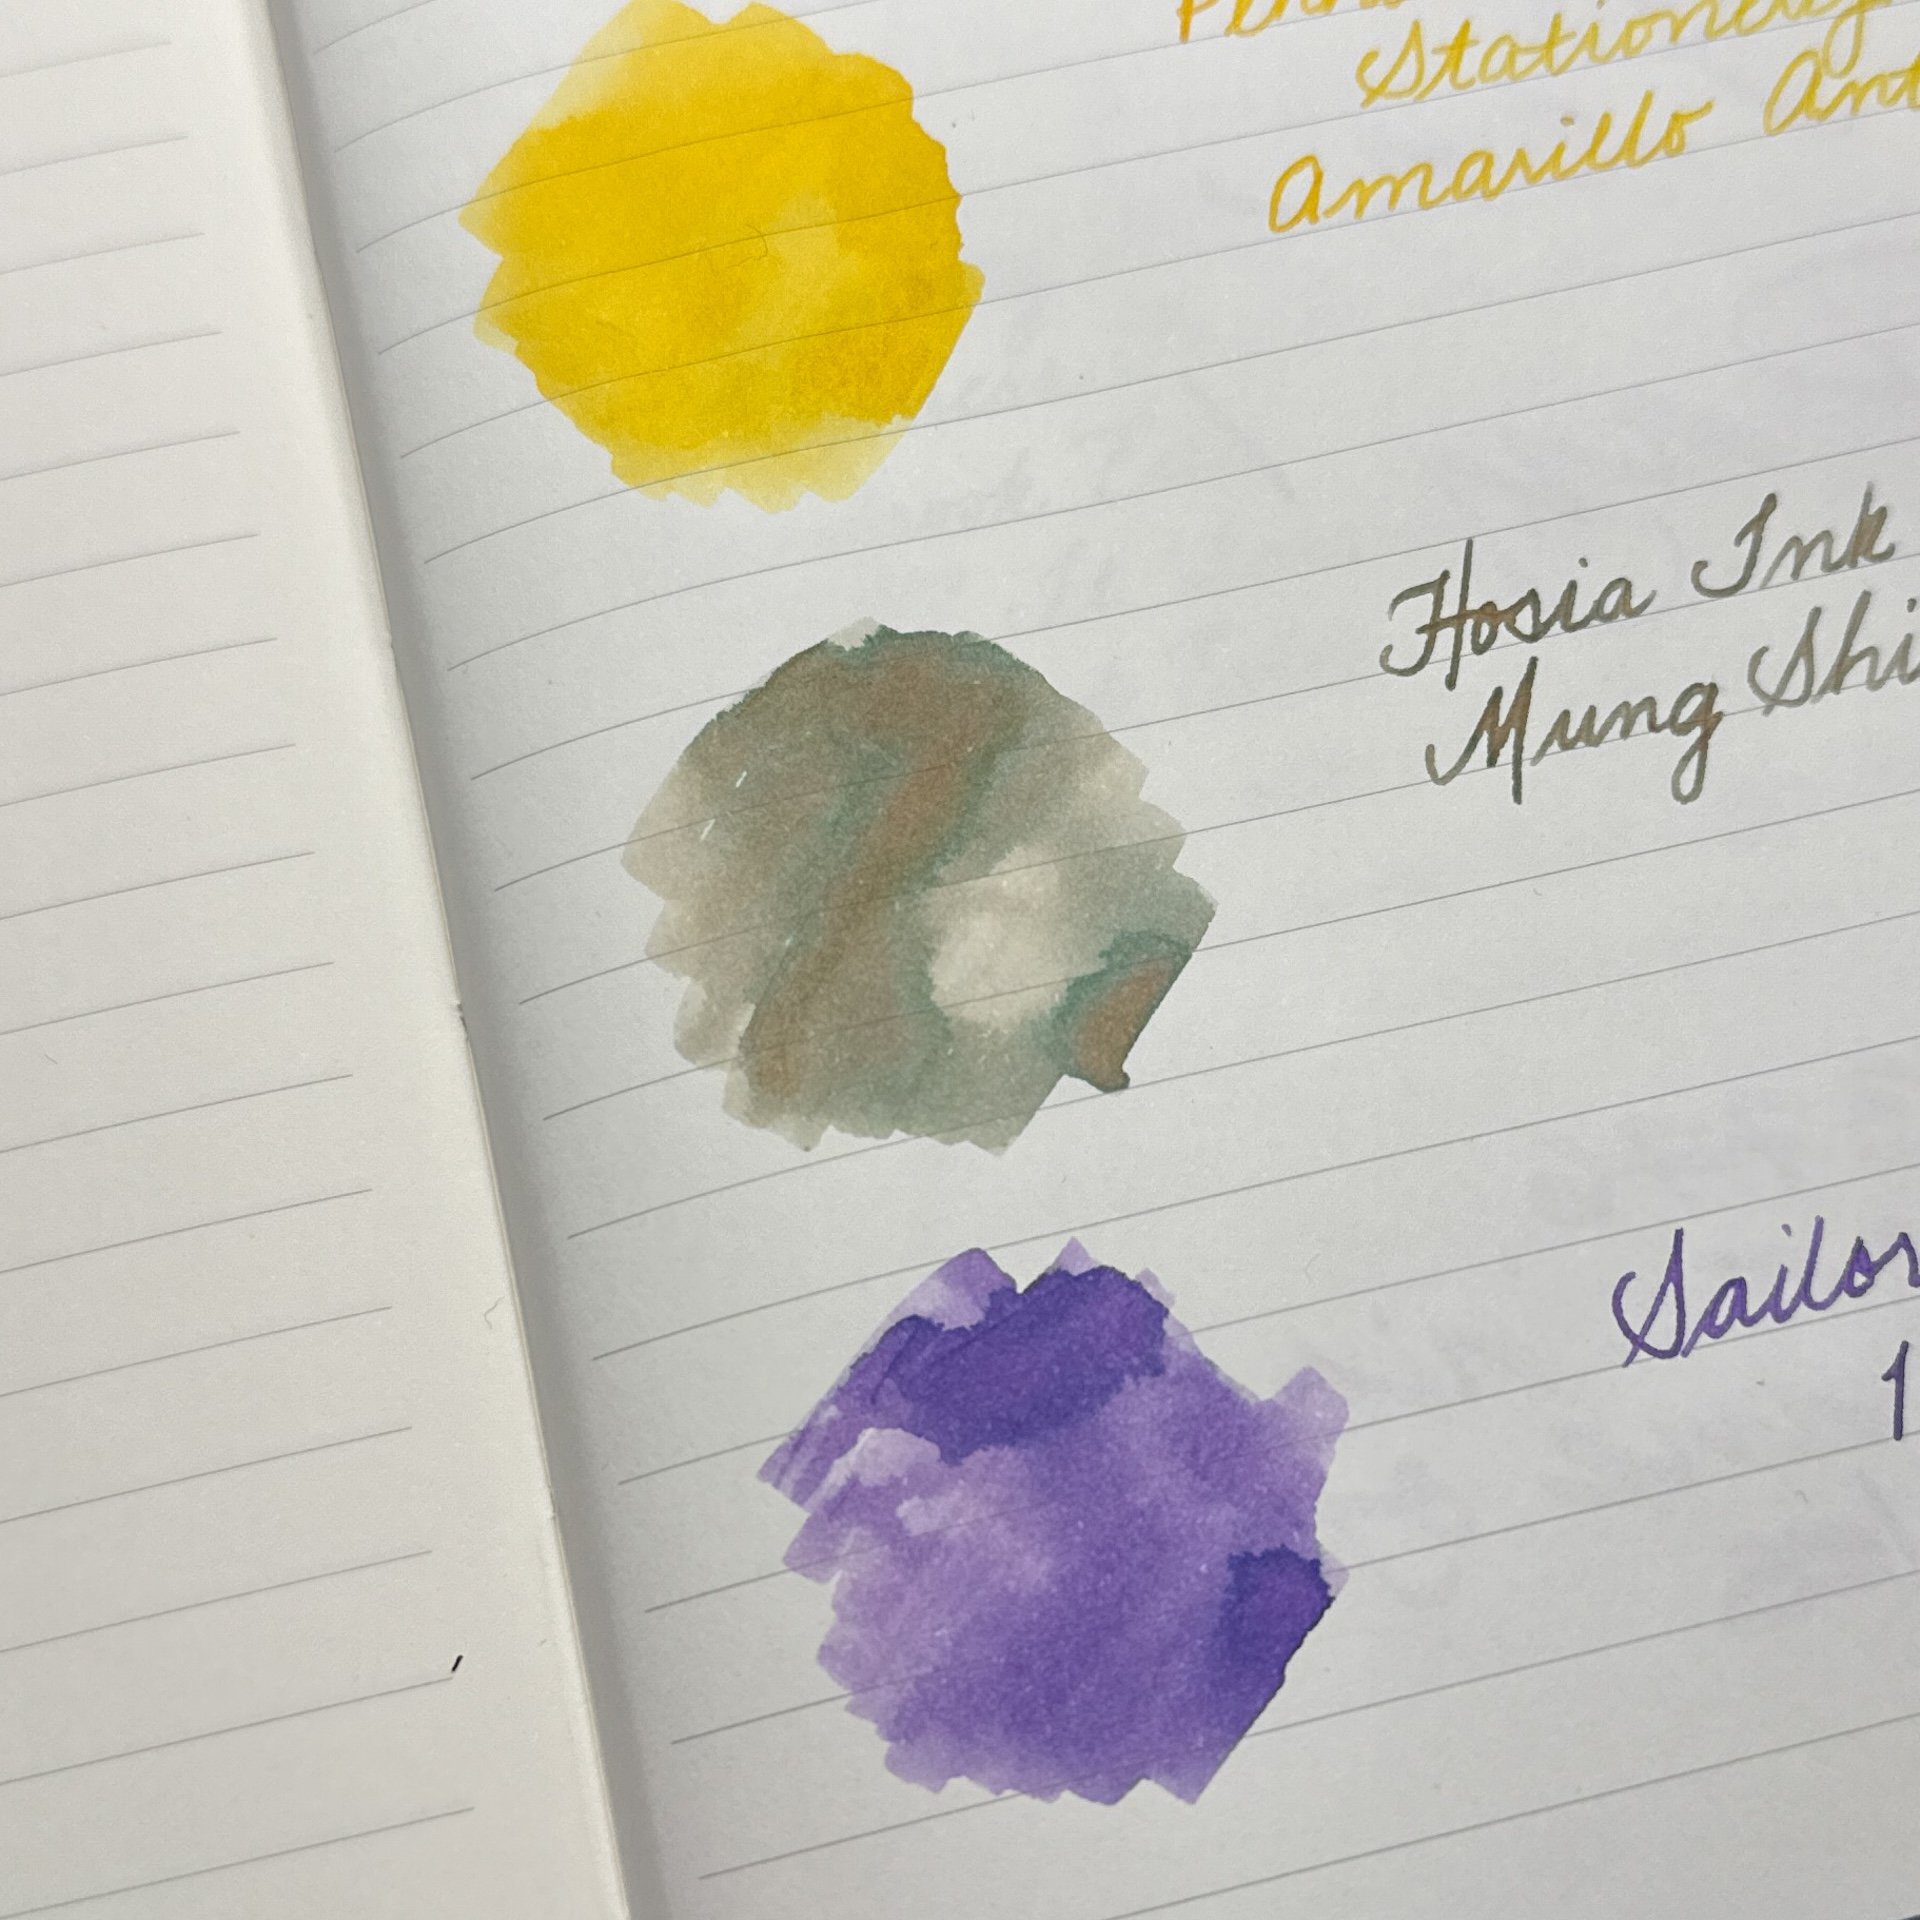 Stationery
Amarillo Ant
Hosia Ink
Mung Shi
Sailor
1